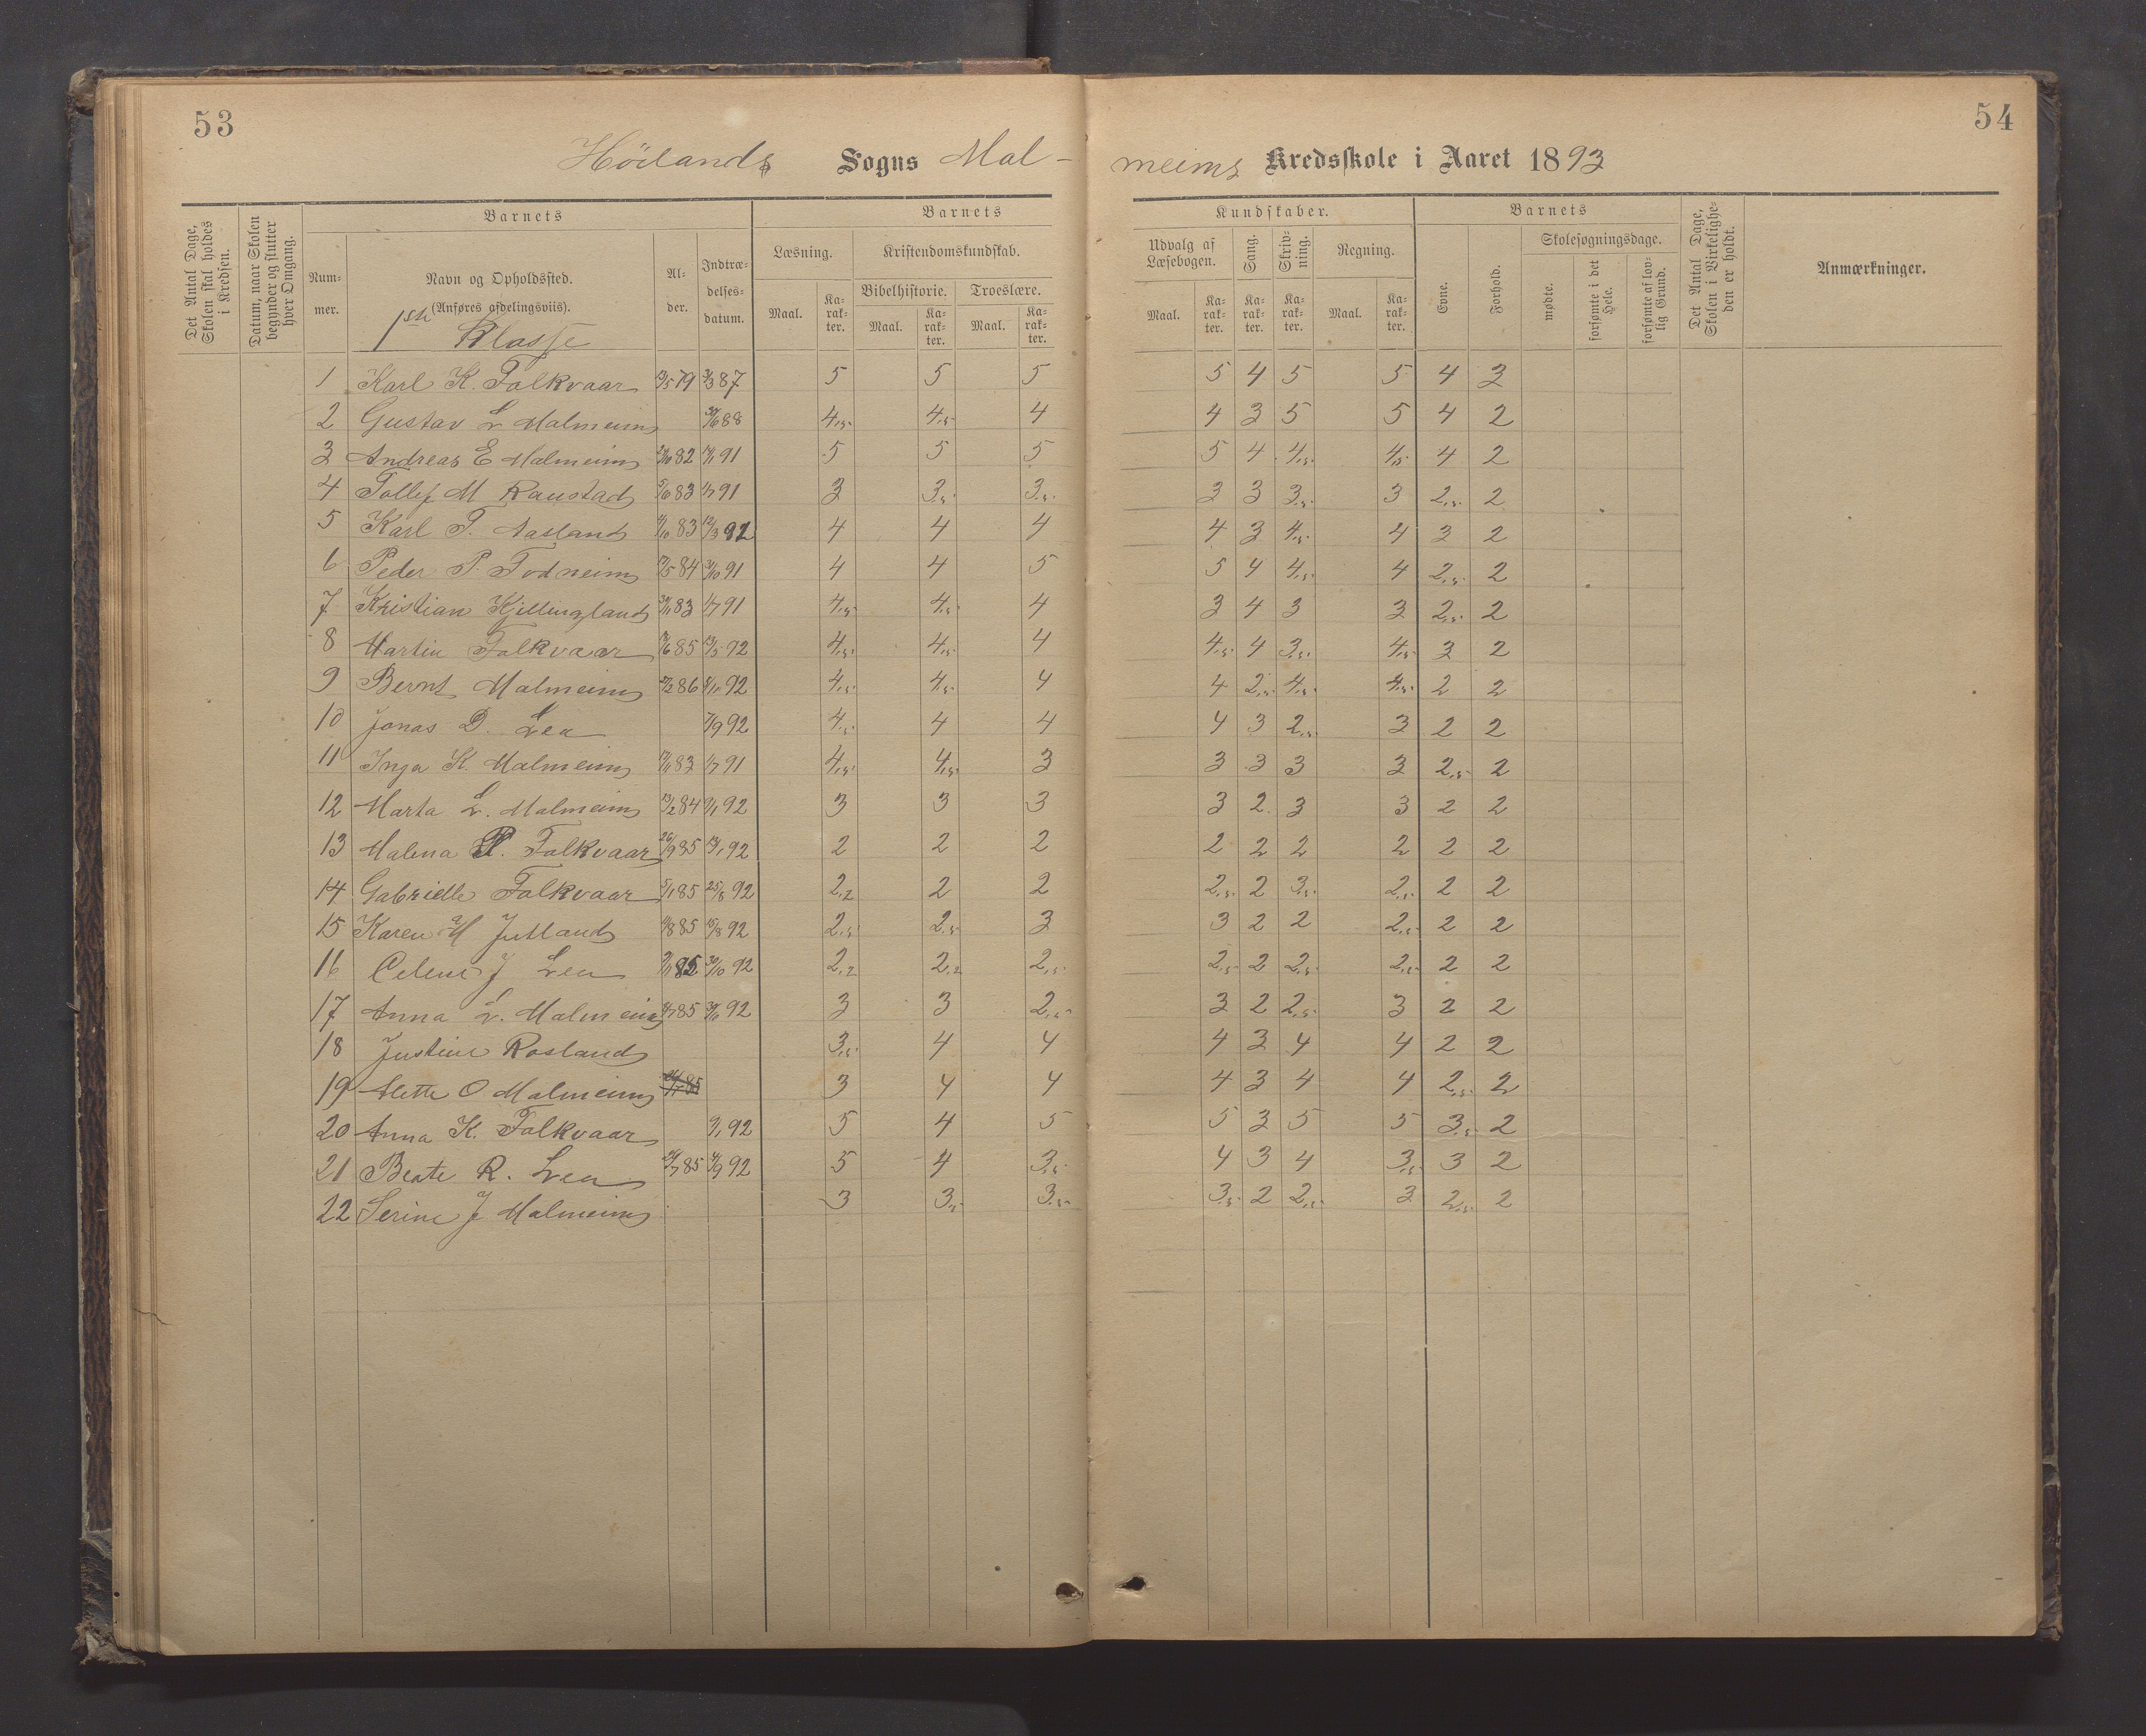 53
54
Höilands Sogns Mal-
meims Kredsskole i Aaret 1893
Det Antal Dage, Skolen skal holdes i Kredsen.
Datum, naar Skolen begynder og slutter hver Omgang.
Barnets
Num-mer.
Navn og Opholdssted.
(Anføres afdelingsviis).
1ste Klasse
Al-der.
Indtræ-delses-datum.
Barnets
Læsning.
Kristendomskundskab.
Bibelhistorie. Troeslære.
Maal. Ka-rak-ter. Maal. Ka-rak-ter. Maal. Ka-rak-ter.
Kundskaber.
Udvalg af Læsebogen. Sang. Skriv-ning. Regning.
Maal. Ka-rak-ter. Ka-rak-ter. Ka-rak-ter. Maal. Ka-rak-ter.
Barnets
Evne. Forhold. Skolesøgningsdage.
mødte. forsømte i det Hele. forsømte af lov-lig Grund.
Det Antal Dage, Skolen i Virkelighe-den er holdt.
Anmærkninger.
1 Karl K. Folkvaar 13/5 79 3/3 87 5 5 5 5 4 5 5 4 3
2 Gustav L Malmeim 30/6 88 4,5 4,5 4 4 3 5 5 4 2
3 Andreas E Malmeim 82 91 5 5 5 5 4 4,5 4,5 4 2
4 Tollef M Raustad 5/6 83 1/7 91 3 3,5 3,5 3 3 3,5 3 2,5 2
5 Karl T. Aasland 83 12/3 92 4 4 4 4 3 4,5 4 3 2
6 Peder P. Fodneim 17/5 84 3/10 91 4 4 5 5 4 4,5 4 2,5 2
7 Kristian Kjellingland 83 1/7 91 4,5 4,5 4 3 4 3 3 2,5 2
8 Martin Folkvaar 85 13/5 92 4,5 4,5 4 4,5 4 3,5 4,5 3 2
9 Bernt Malmeim 86 92 4,5 4,5 4 4 2,5 4,5 4,5 2 2
10 Jonas D. Lea 7/9 92 4,5 4 4 4 3 2,5 3 2 2
11 Inga K. Malmeim 83 1/7 91 4,5 4,5 3 3 3 3 3 2,5 2
12 Marta L. Malmeim 13/2 84 9/1 92 3 3 3 3 2 3 3 2 2
13 Malena P. Folkvaar 26/9 85 92 2 2 2 2 2 2 2 2 2
14 Gabrielle Folkvaar 5/1 85 25/8 92 2,2 2 2 2,5 2 3,5 2,5 2 2
15 Karen M Jutland 85 15/8 92 2,5 2,5 3 3 2 2 2,5 2 2
16 Celene J Lea 85 30/10 92 2,2 2,2 2,5 2,5 2 2,5 2,5 2 2
17 Anna L. Malmeim 85 30/10 92 3 3 2,5 3 2 2,5 3 2 2
18 Justine Rosland 3,5 4 4 4 3 4 4 2 2
19 Mette O Malmeim 85 3 4 4 4 3 4 4 2,5 2
20 Anna K. Folkvaar 9/1 92 5 4 5 5 3 5 5 3,5 2
21 Beate R. Lea 29/7 85 92 5 4 3,5 4 3 4 3,5 3 2
22 Serine J Malmeim 3 3,5 3,5 3,5 2 2,5 3 2,5 2